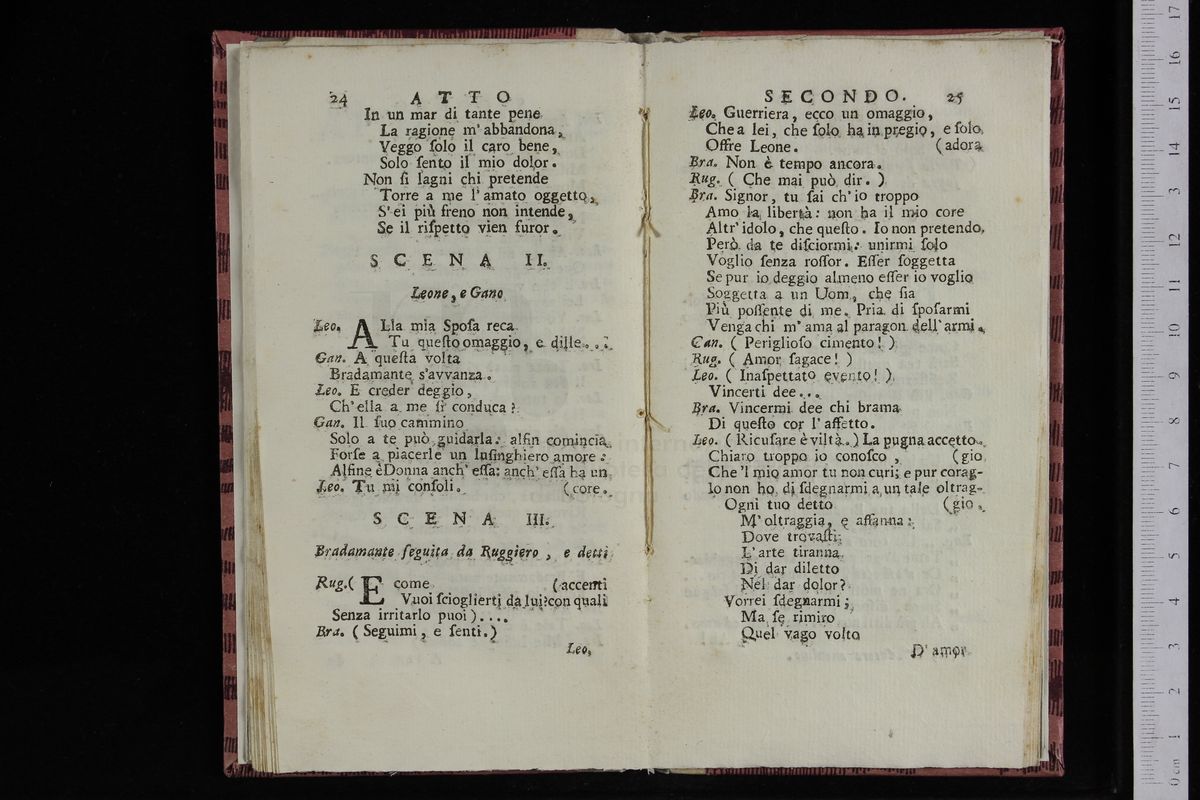 24 ATTO
In un mar di tante pene
La ragione m' abbandona,
Veggo ſolo il caro bene,
Solo ſento il mio dolor.
Non ſi lagni chi pretende
Torre a me l' amato oggetto,
S' ei più freno non intende,
Se il riſpetto vien furor.
SCENA II.
Leone, e Gano
Leo. ALla mia Spoſa reca
Tu queſto omaggio, e dille...
Gan. A queſta volta
Bradamante s'avvanza.
Leo. E creder deggio,
Ch' ella a me ſi conduca?
Gan. Il ſuo cammino
Solo a te può guidarla: alfin comincia
Forſe a piacerle un luſinghiero amore:
Alfine è Donna anch' eſſa: anch' eſſa ha un
Leo. Tu mi conſoli. (core.
SCENA III.
Bradamante ſeguita da Ruggiero, e detti
Rug. ( E come (accenti
Vuoi ſcioglierti da lui? con quali
Senza irritarlo puoi)....
Bra. (Seguimi, e ſenti.)
Leo,
SECONDO. 25
Leo. Guerriera, ecco un omaggio,
Che a lei, che ſolo ha in pregio, e ſolo
Offre Leone. (adora
Bra. Non è tempo ancora.
Rug. ( Che mai può dir. )
Bra. Signor, tu ſai ch' io troppo
Amo la libertà: non ha il mio core
Altr' idolo, che queſto. Io non pretendo,
Però da te diſciormi: unirmi ſolo
Voglio ſenza roſſor. Eſſer ſoggetta
Se pur io deggio almeno eſſer io voglio
Soggetta a un Uom, che ſia
Più poſſente di me. Pria di ſpoſarmi
Venga chi m' ama al paragon dell' armi.
Can. ( Periglioſo cimento! )
Rug. ( Amor ſagace! )
Leo. ( Inaſpettato evento! )
Vincerti dee...
Bra. Vincermi dee chi brama
Di queſto cor l' affetto.
Leo. ( Ricuſare è viltà.) La pugna accetto.
Chiaro troppo io conoſco, (gio
Che 'l mio amor tu non curi; e pur corag-
Io non ho di ſdegnarmi a un tale oltrag-
Ogni tuo detto (gio.
M' oltraggia, e affanna:
Dove trovaſti
L' arte tiranna
Di dar diletto
Nel dar dolor?
Vorrei ſdegnarmi;
Ma ſe rimiro
Quel vago volto
D' amor